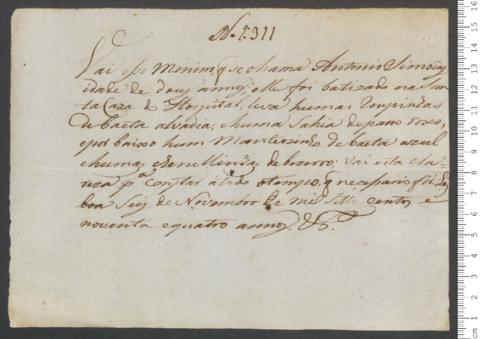 N. 1311
Vai este Menino q se chama Antonio Simois
idade de douz annos elle foi batizado na San
ta Caza do Hospital, leva humas
de baeta alvadia, e huma Sahia de pano roxo,
e por baixo hum Mantezinho de baeta azul
e humas de bezerro; vai esta cla
reza p.ª constar a todo o tempo, q necessario for Lis
boa Seis de Novembro de mil sette centos e
noventa e quatro annos.